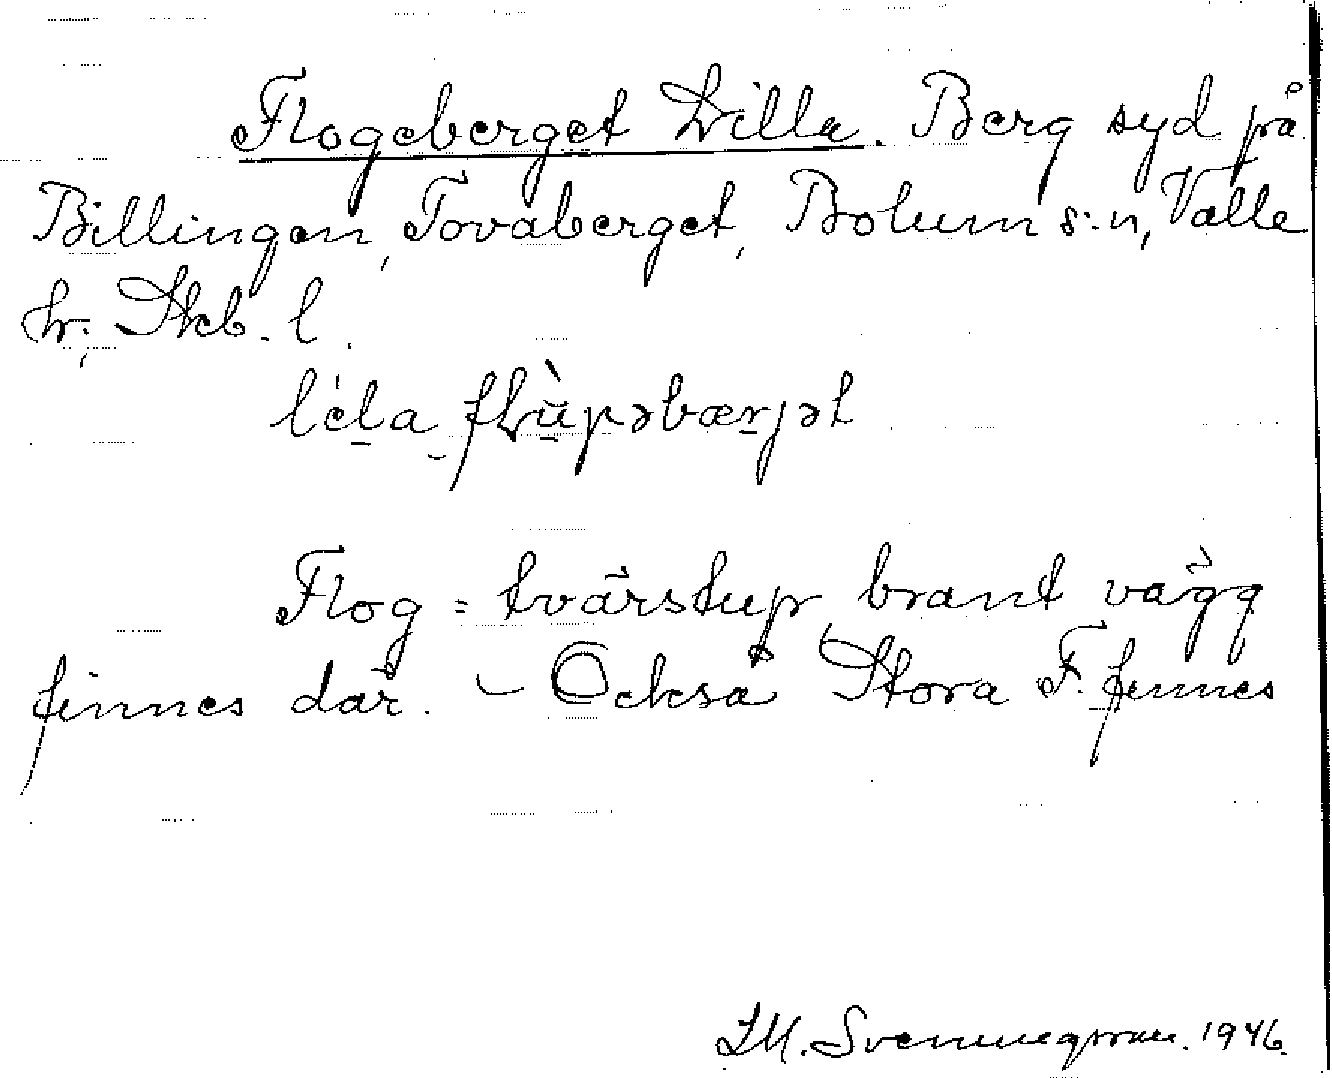 Flogeberget Lilla. Berg syd på
Billingen, Tovaberget, Bolum s:n, Valle
hr; Skb. l.
Flog = tvärstup brant vägg
finnes där. – Också Stora F. finnes
1946.